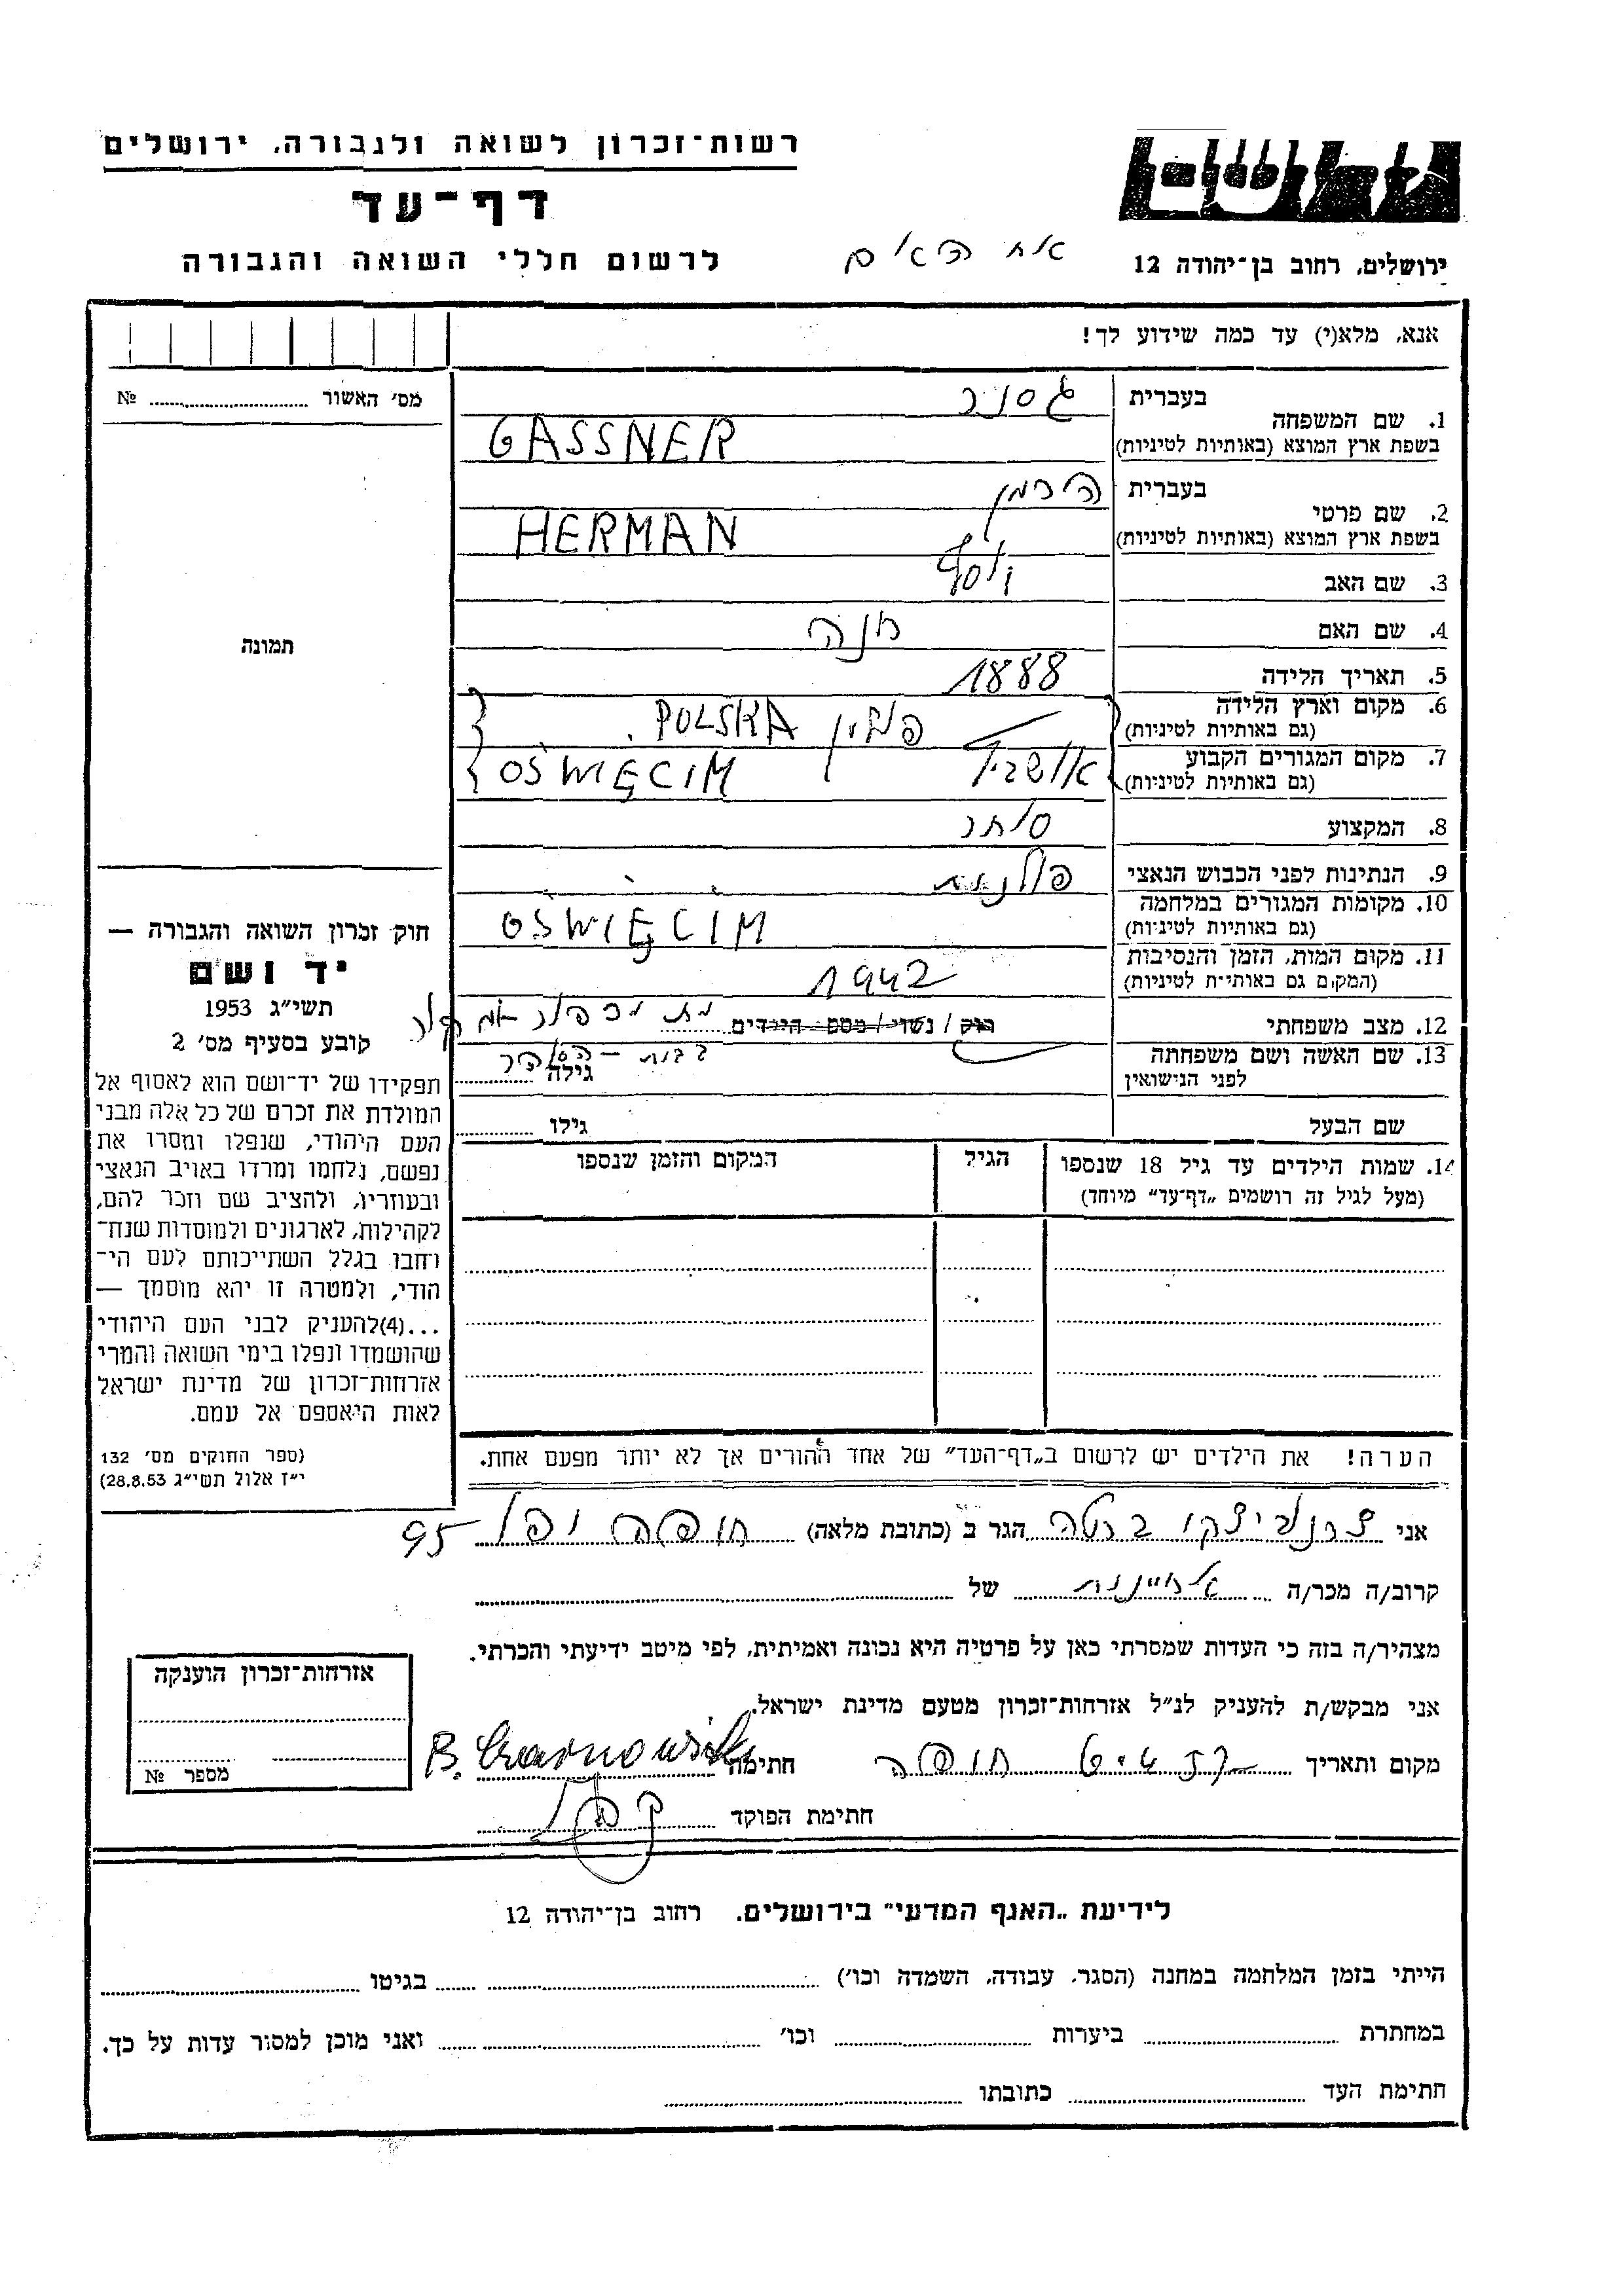 רשות־זכרון לשואה ולגבורה, ירושלים
דף־עד
לרשום חללי השואה והגבורה
ירושלים, רחוב בן־יהודה 12
אנא, מלא(י) עד כמה שידוע לך!
מס׳ האשור № ........
תמונה
1. שם המשפחה
בעברית גסנר
בשפת ארץ המוצא (באותיות לטיניות) GASSNER
2. שם פרטי
בעברית הירמן
בשפת ארץ המוצא (באותיות לטיניות) HERMAN
3. שם האב יוסף
4. שם האם חנה
5. תאריך הלידה 1888
6. מקום וארץ הלידה פולין POLSKA
(גם באותיות לטיניות)
7. מקום המגורים הקבוע OŚWIĘCIM
(גם באותיות לטיניות)
8. המקצוע סוחר
9. הנתינות לפני הכבוש הנאצי פולנית
10. מקומות המגורים במלחמה OŚWIĘCIM
(גם באותיות לטיניות)
11. מקום המות, הזמן והנסיבות 1942
(המקום גם באותיות לטיניות)
12. מצב משפחתי רוק / נשוי / מספ הילדים
13. שם האשה ושם משפחתה
לפני הנישואין
גילה
שם הבעל גילו
14. שמות הילדים עד גיל 18 שנספו
(מעל לגיל זה רושמים „דף־עד” מיוחד)
הגיל
המקום והזמן שנספו
הערה! את הילדים יש לרשום ב„דף־העד” של אחד ההורים אך לא יותר מפעם אחת.
חוק זכרון השואה והגבורה —
יד ושם
תשי״ג 1953
קובע בסעיף מס׳ 2
תפקידו של יד־ושם הוא לאסוף אל
המולדת את זכרם של כל אלה מבני
העם היהודי, שנפלו ומסרו את
נפשם, נלחמו ומרדו באויב הנאצי
ובעוזריו, ולהציב שם וזכר להם,
לקהילות, לארגונים ולמוסדות שנח־
רחבו בגלל השתייכותם לעם הי־
הודי, ולמטרה זו יהא מוסמך —
...(4)להעניק לבני העם היהודי
שהושמדו ונפלו בימי השואה והמרי
אזרחות־זכרון של מדינת ישראל
לאות היאספם אל עמם.
(ספר החוקים מס׳ 132
י״ז אלול תשי״ג 28.8.53)
אני צרנוביצקי ברטה הגר ב (כתובת מלאה) חיפה יפו 95
קרוב/ה מכר/ה של
מצהיר/ה בזה כי העדות שמסרתי כאן על פרטיה היא נכונה ואמיתית, לפי מיטב ידיעתי והכרתי.
אני מבקש/ת להעניק לנ״ל אזרחות־זכרון מטעם מדינת ישראל.
מקום ותאריך חיפה חתימה
חתימת הפוקד
אזרחות־זכרון הוענקה
מספר №
לידיעת „האגף המדעי” בירושלים. רחוב בן־יהודה 12
הייתי בזמן המלחמה במחנה (הסגר, עבודה, השמדה וכו׳) בגיטו
במחתרת ביערות וכו׳ ואני מוכן למסור עדות על כך.
חתימת העד כתובתו